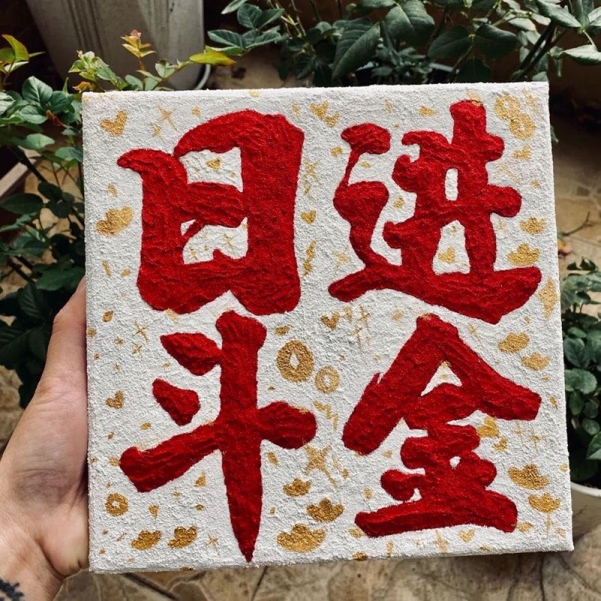 日进
斗金